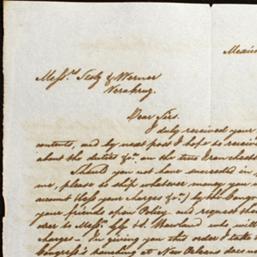 Mexico
Messrs. Scoty & Warner
Veracruz.
Dear Sirs.
I duly received your
contents, and by next post I hope to receive
about the duties &c. on the two Iron chests
Should you not have succeeded in
me, please to ship whatever money you
amount (less your charges &c) by the Congress
your friends upon Policy. and request them
der to Messrs. G. G. & S. Howland who will
charges – In giving you this order I take
Congress is touching at New Orleans does not